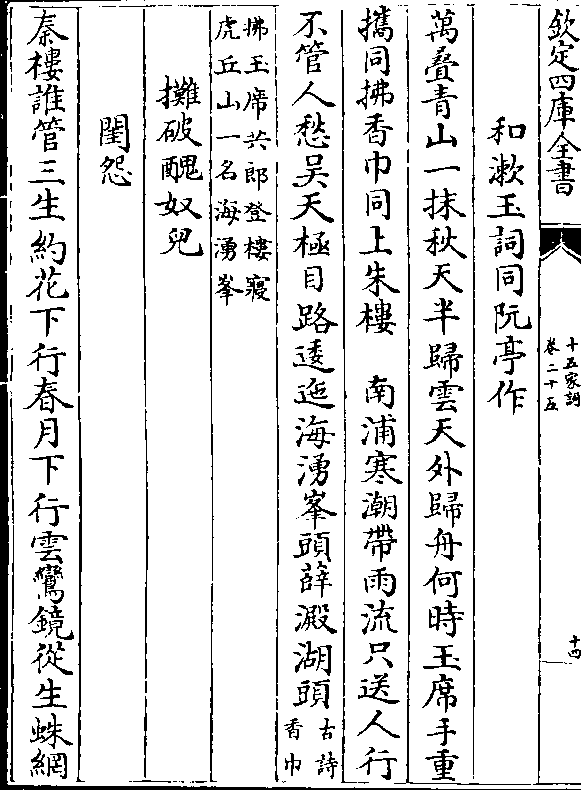 欽定四庫全書
十五家詞
卷二十五
十四
和漱玉詞同阮亭作
萬疊青山一抹秋天半歸雲天外歸舟何時玉席手重
攜同拂香巾同上朱樓　南浦寒潮帶雨流只送人行
不管人愁吳天極目路逶迤海湧峯頭薛澱湖頭
古詩
香巾
拂玉席共郎登樓寢
虎丘山一名海湧峯
攤破醜奴兒
閨怨
秦樓誰管三生約花下行春月下行雲鸞鏡從生蛛網